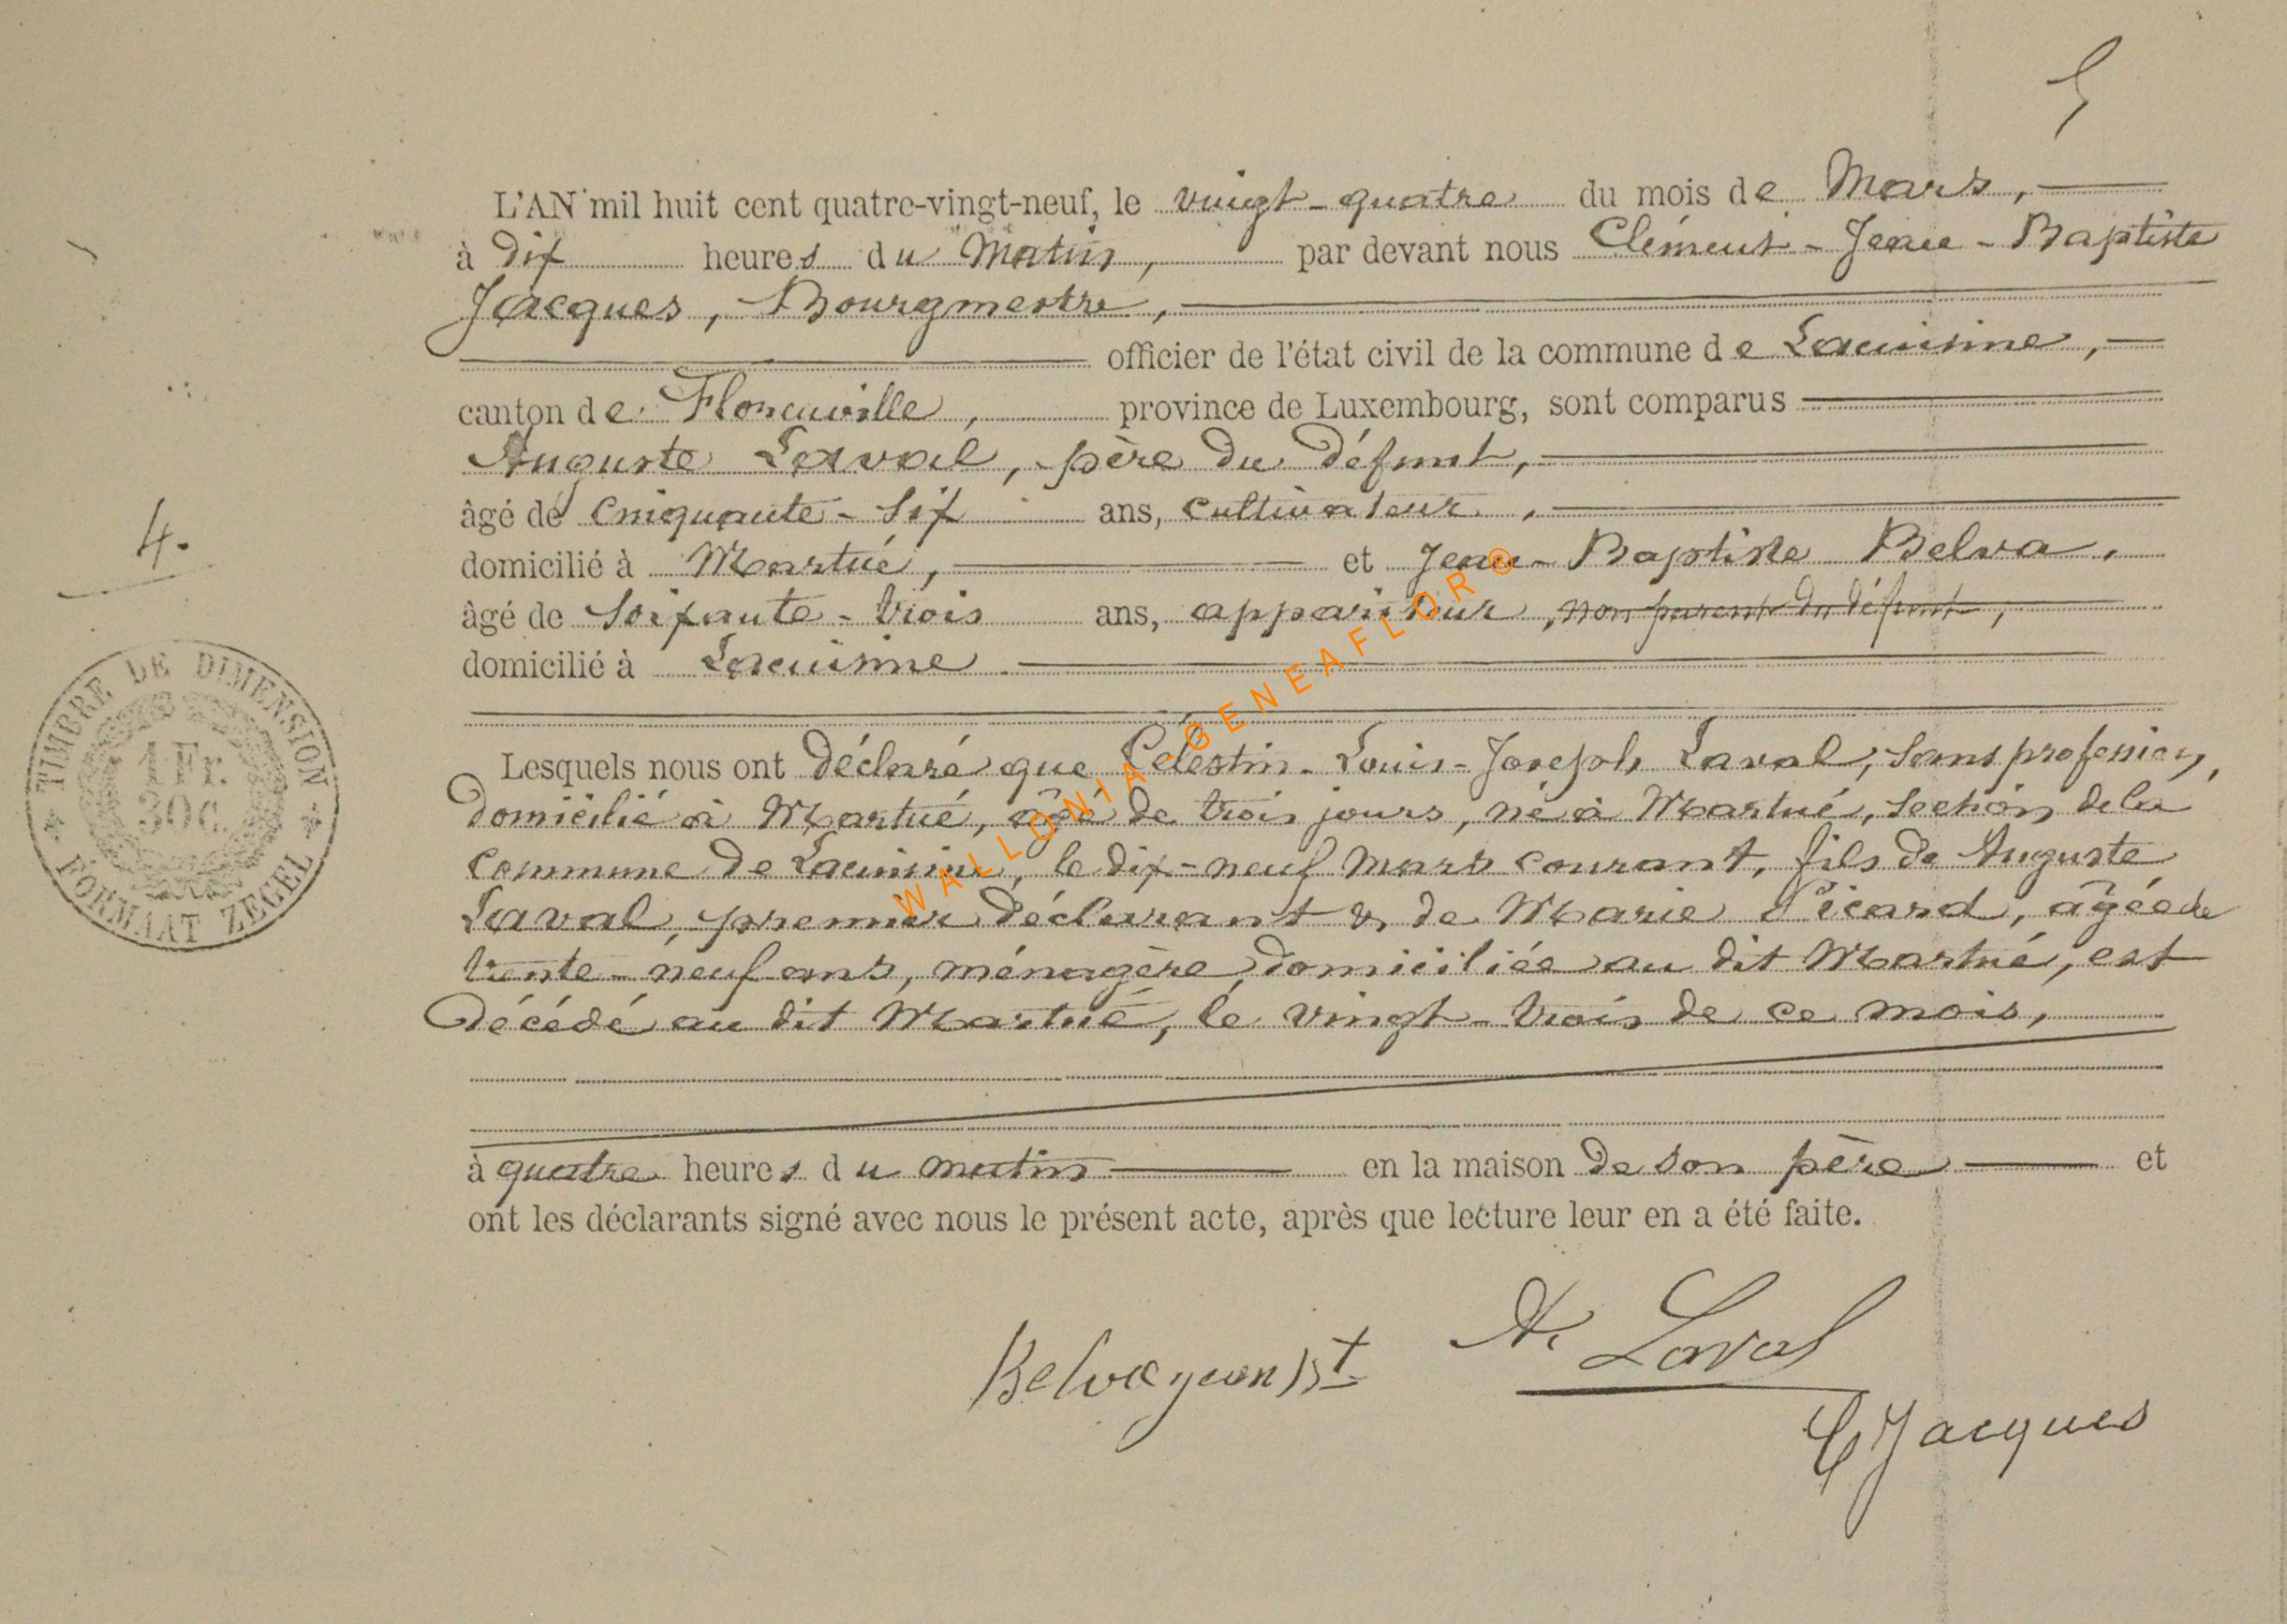 5
L'AN mil huit cent quatre-vingt-neuf, le vingt-quatre du mois de Mars,
à dix heures du Matin, par devant nous Clément-Jean-Baptiste
Jacques, Bourgmestre,
officier de l'état civil de la commune de Lacuisine,
canton de Florenville, province de Luxembourg, sont comparus
Auguste Laval, père du défunt,
âgé de cinquante-six ans, cultivateur,
domicilié à Martué, et Jean-Baptiste Belva,
âgé de soixante-trois ans, appariteur, non parent du défunt,
domicilié à Lacuisine
4.
TIMBRE DE DIMENSION
1 Fr.
30 c.
FORMAAT ZEGEL
Lesquels nous ont déclaré que Célestin-Louis-Joseph Laval, sans profession,
domicilié à Martué, âgé de trois jours, né à Martué, section de la
commune de Lacuisine, le dix-neuf mars courant, fils de Auguste
Laval, premier déclarant & de Marie Picard, âgée de
trente-neuf ans, ménagère domiciliée au dit Martué, est
décédé au dit Martué, le vingt-trois de ce mois,
à quatre heures du matin en la maison de son père et
ont les déclarants signé avec nous le présent acte, après que lecture leur en a été faite.
Belva jean Bt A. Laval
C Jacques
WALLONIA GENEAFLOR ©